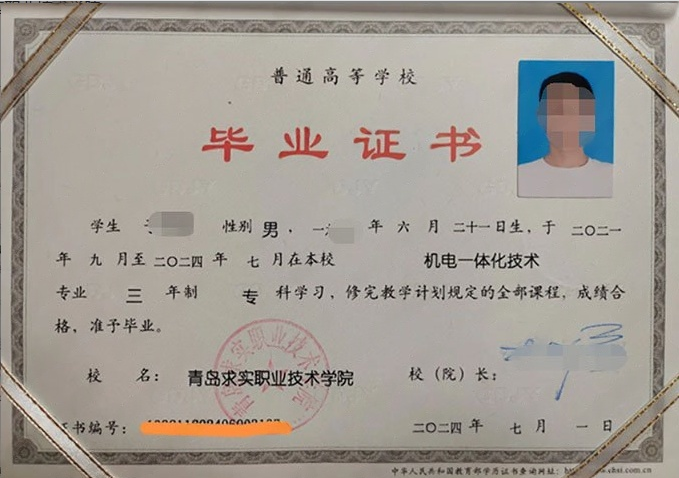 普通高等学校
毕业证书
学生 性别 男， 年 六 月 二十一日生，于 二〇二一
年 九 月至二〇二四 年 七 月在本校 机电一体化技术
专业 三 年制 专 科学习，修完教学计划规定的全部课程，成绩合
格，准予毕业。
校 名： 青岛求实职业技术学院 校（院）长：
证书编号：
二〇二四 年 七 月 一 日
中华人民共和国教育部学历证书查询网址：http://www.chsi.com.cn